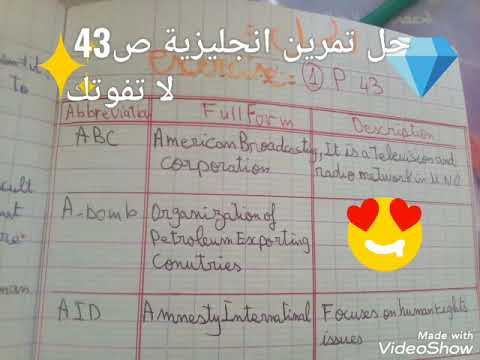 حل تمرين انجليزية ص43
لا تفوتك
exercise: ① P 43
To
Abbreviation Full Form Description
ABC American Broadcasting It is a Television and
corporation radio network in U
A-bomb Organization of
Petroleum Exporting
Conutries
AID Amnesty International Focuses on human rights
issues
Made with
VideoShow